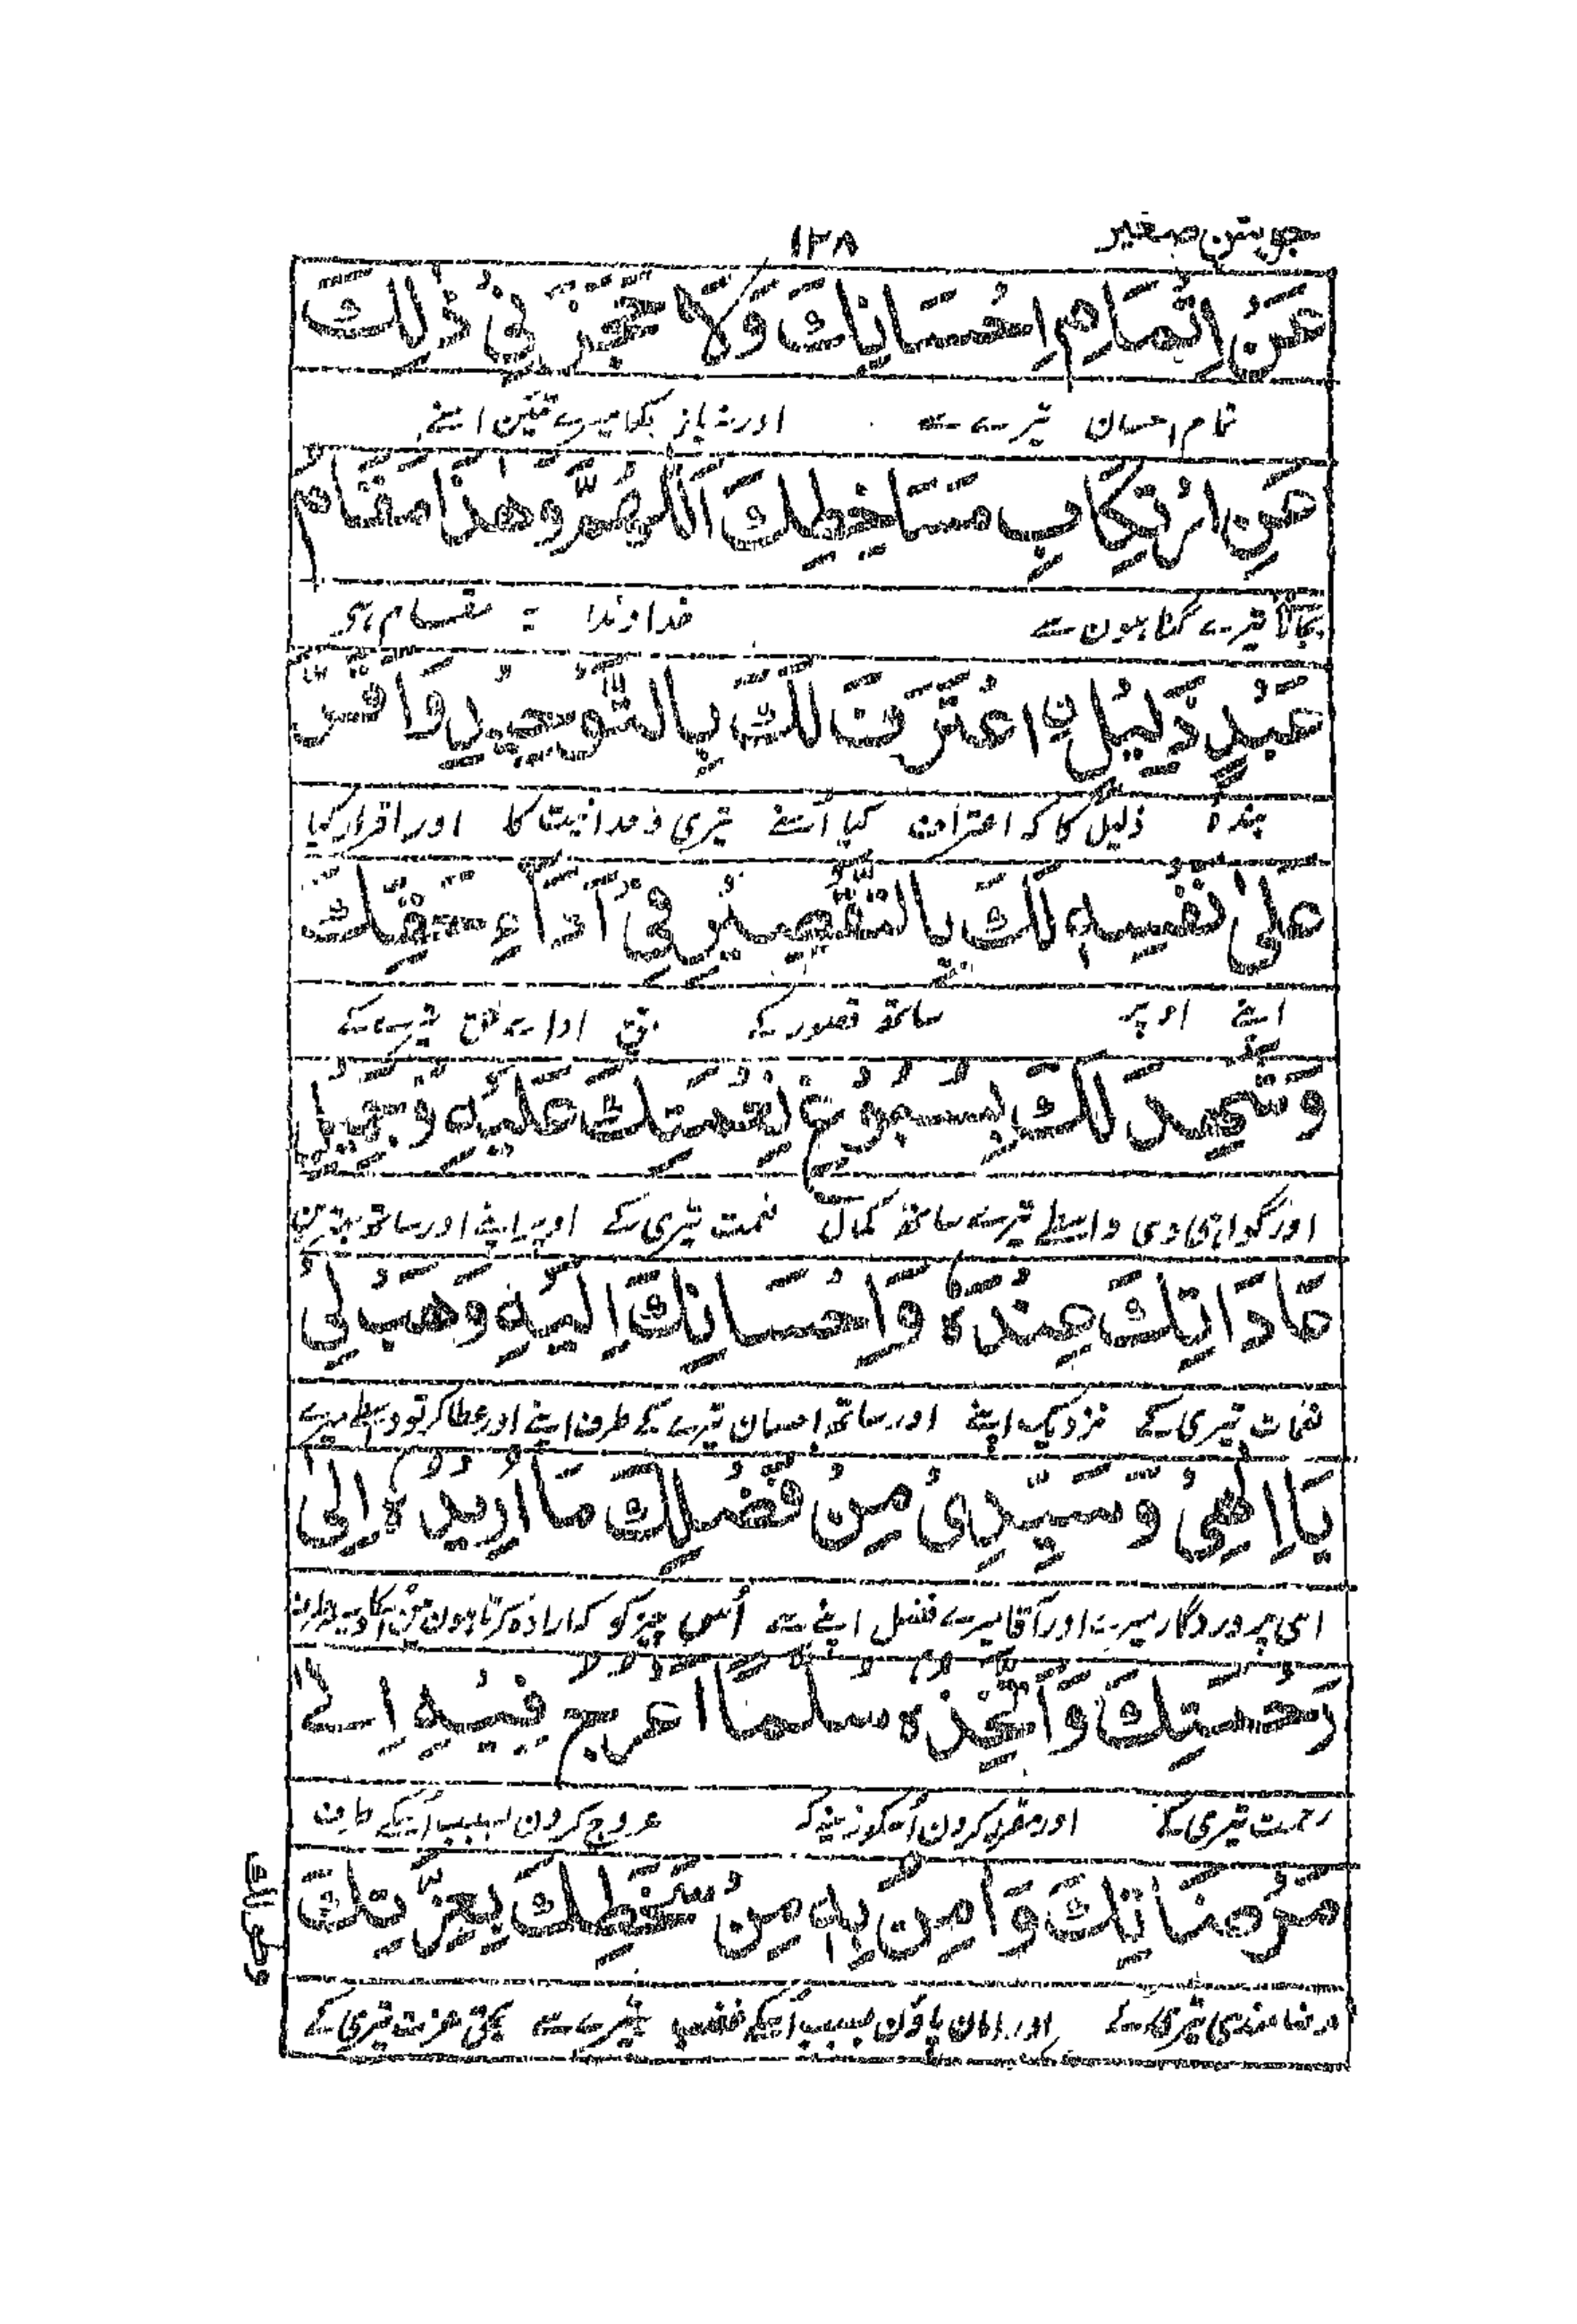 جوشن صغیر
١٢٨
عَنْ اِتْمَامِ اِحْسَانِكَ وَلَا تَحْجُزُنِيْ ذٰلِكَ
تمام احسان تیرے سے اور نہ باز رکھا میرے تئین اسنے
عَنِ ارْتِكَابِ مَسَاخِطِكَ اَللّٰهُمَّ وَهٰذَا مَقَامُ
بجالانا تیرے گناہون سے خداوندا یہ مقام ہی
عَبْدٍ ذَلِيْلٍ نِ اعْتَرَفَ لَكَ بِالتَّوْحِيْدِ وَاَقَرَّ
بندہ ذلیل کا کہ اعتراف کیا اُسنے تیری وحدانیت کا اور اقرار کیا
عَلٰى نَفْسِهٖ لَكَ بِالتَّقْصِيْرِ فِيْ اَدَاءِ حَقِّكَ
اپنے اوپر ساتھ قصور کے بیچ اداے حق تیرے کے
وَشَهِدَ لَكَ بِسُبُوْغِ نِعْمَتِكَ عَلَيْهِ وَجَمِيْلِ
اور گواہی دی واسطے تیرے ساتھ کمال نعمت تیری کے اوپر اپنے اور ساتھ بہترین
عَادَاتِكَ عِنْدَهٗ وَاِحْسَانِكَ اِلَيْهِ وَهَبْ لِيْ
نعمات تیری کے نزدیک اپنے اور ساتھ احسان تیرے کے طرف اپنے اور عطا کر تو واسطے میرے
يَا اِلٰهِيْ وَسَيِّدِيْ مِنْ فَضْلِكَ مَا اُرِيْدُهٗ اِلٰى
اسی پروردگار میرے اور آقا میرے فضل اپنے سے اُس چیز کو کہ ارادہ کرتا ہون مین اُسکا طرف
رَحْمَتِكَ وَاَتَّخِذُهٗ سُلَّمًا اَعْرُجُ فِيْهِ اِلٰے
رحمت تیری کے اور مقرر کرون اُسکو زینہ کہ عروج کرون بسبب اُسکے طرف
مَرْضَاتِكَ وَاٰمَنُ بِهٖ مِنْ سَخَطِكَ بِعِزَّتِكَ
رضامندی تیری کے اور امان پاؤن بسبب اُسکے غضب تیرے سے بحق عزت تیری کے
وطولك